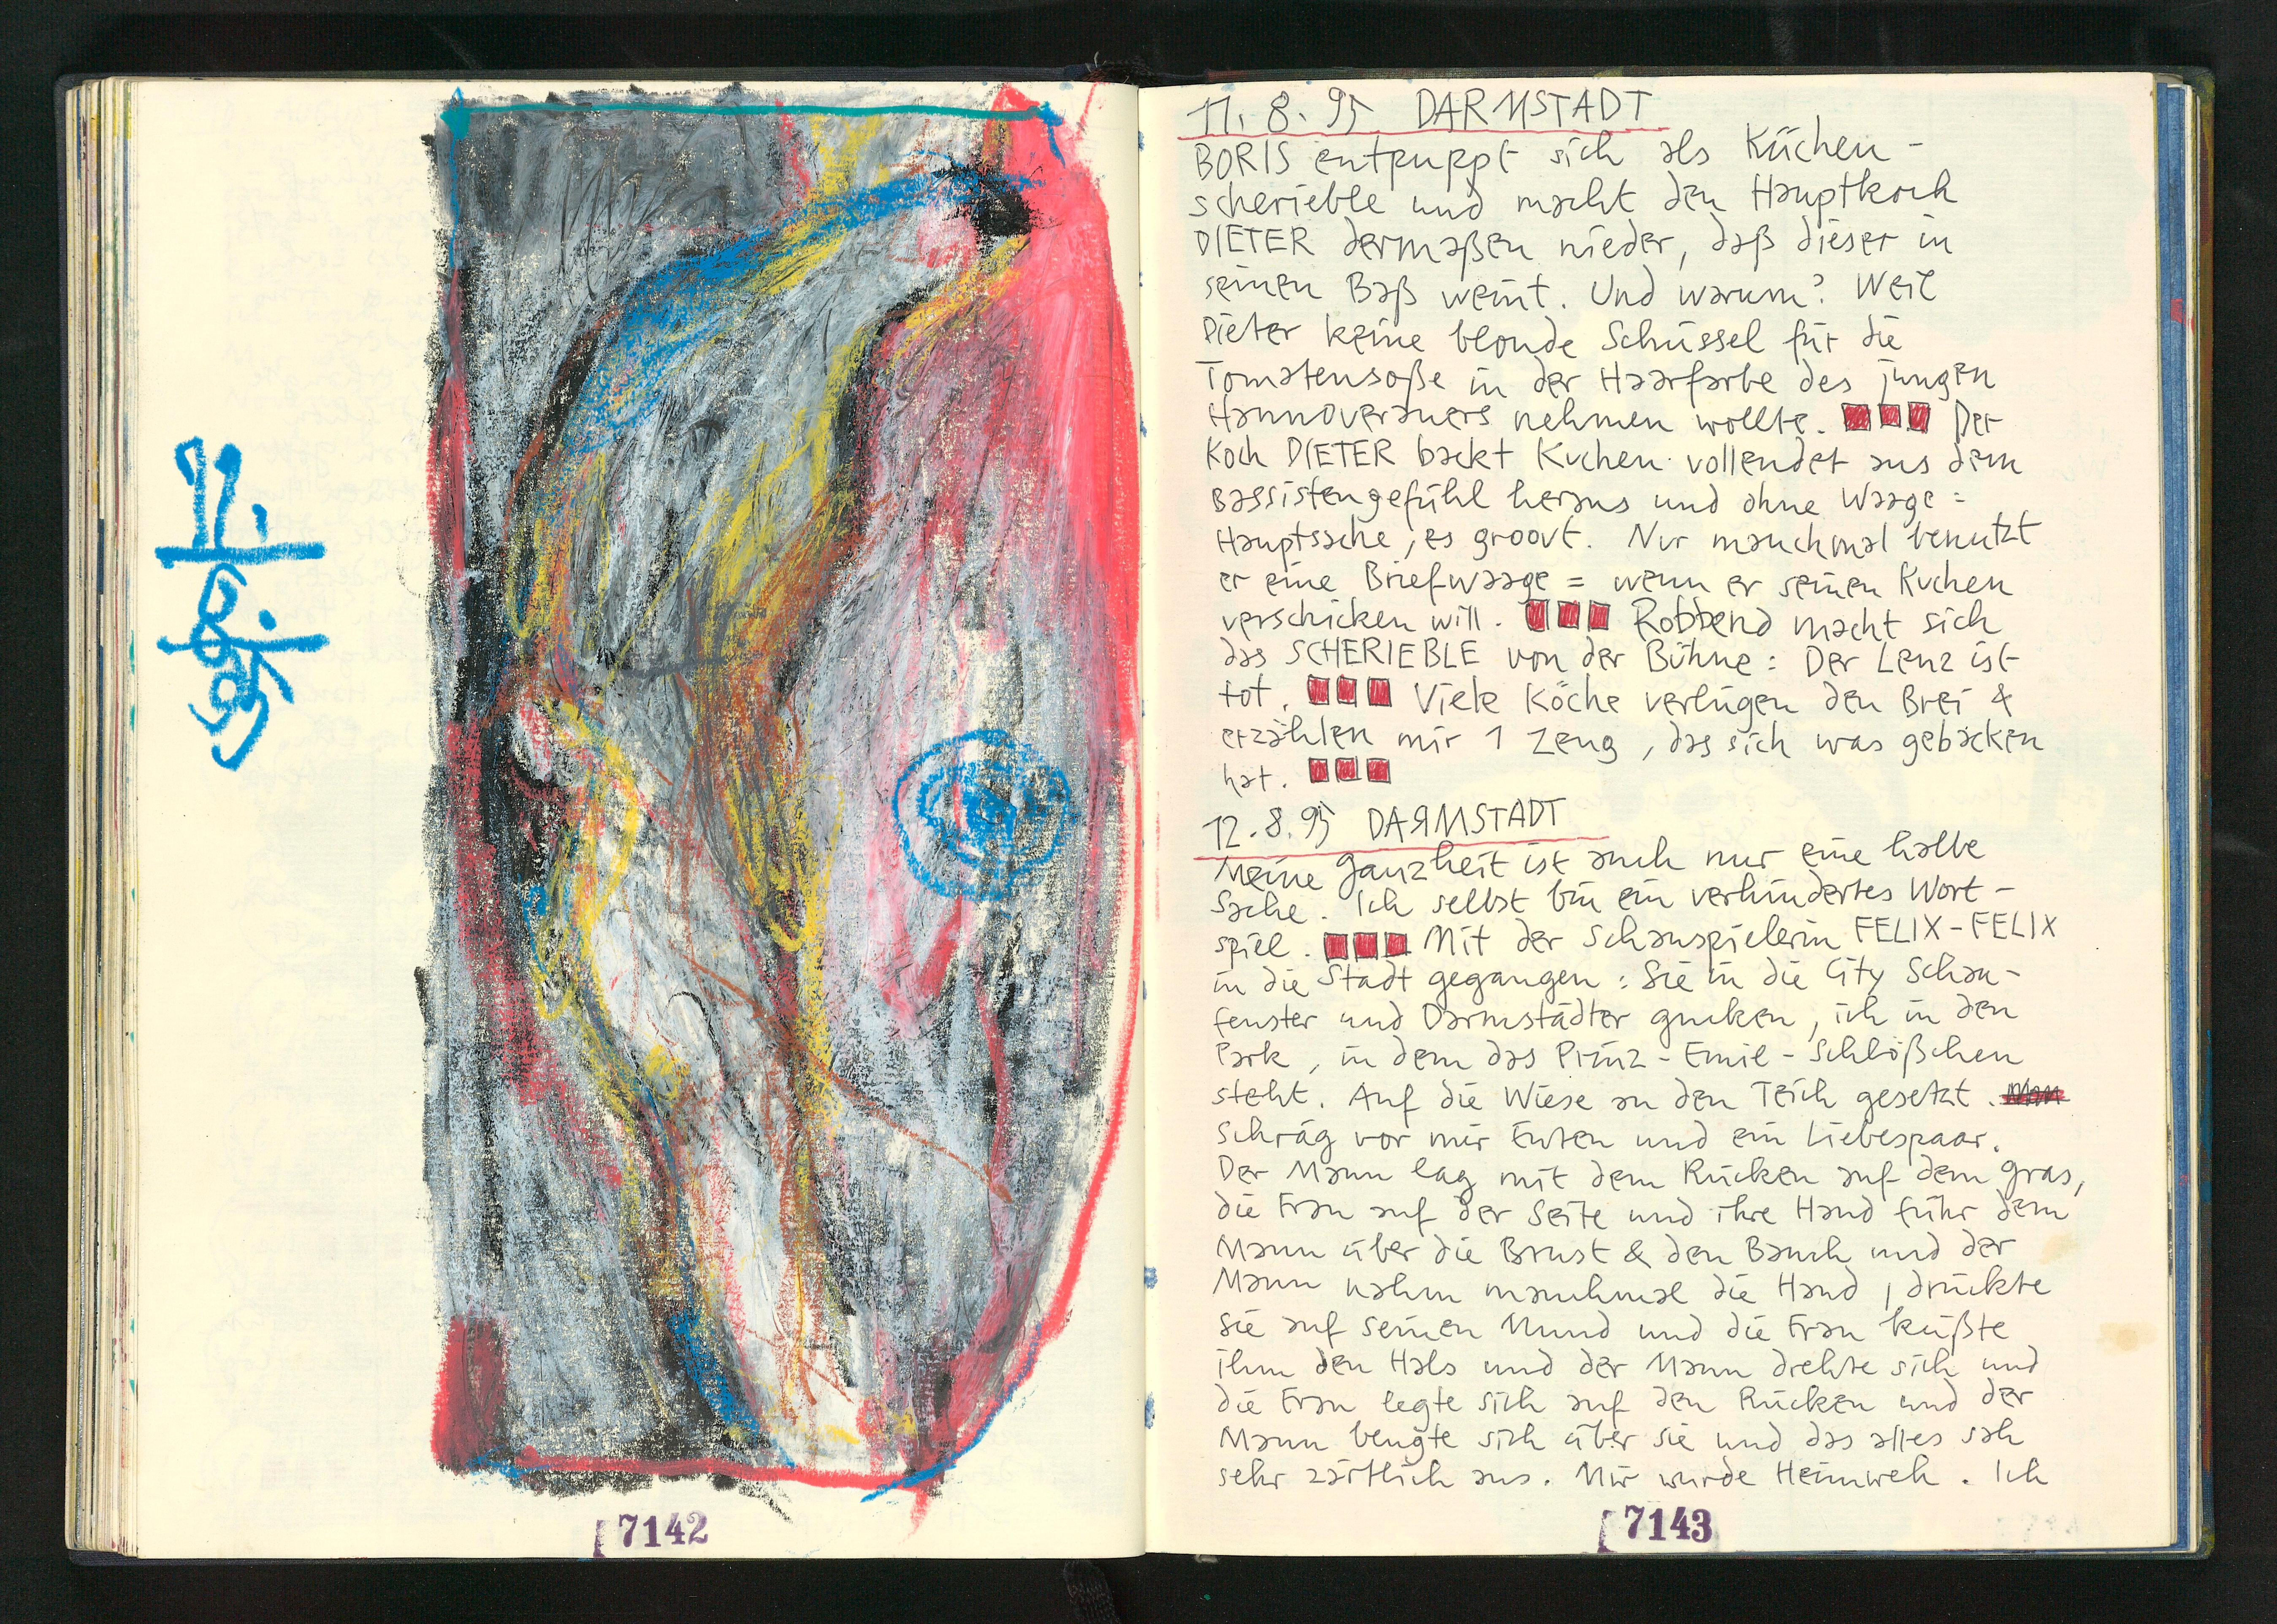 11.
8.
95
7142
11. 8. 95 DARMSTADT
BORIS entpuppt sich als Küchen-
scherieble und macht den Hauptkoch
DIETER dermaßen nieder, daß dieser in
seinen Baß weint. Und warum? Weil
Dieter keine blonde Schüssel für die
Tomatensoße in der Haarfarbe des jungen
Hannoveraners nehmen wollte. Der
Koch DIETER backt Kuchen vollendet aus dem
Bassistengefühl heraus und ohne Waage =
Hauptsache, es groovt. Nur manchmal benutzt
er eine Briefwaage = wenn er seinen Kuchen
verschicken will. Robbend macht sich
das SCHERIEBLE von der Bühne: Der Lenz ist
tot. Viele Köche verlügen den Brei &
erzählen mir 1 Zeug, das sich was gebacken
hat.
12. 8. 95 DARMSTADT
Meine Ganzheit ist auch nur eine halbe
Sache. Ich selbst bin ein verhindertes Wort-
spiel. Mit der Schauspielerin FELIX-FELIX
in die Stadt gegangen: Sie in die City Schau-
fenster und Darmstädter gucken, ich in den
Park, in dem das Prinz-Emil-Schlößchen
steht. Auf die Wiese an den Teich gesetzt.
Schräg vor mir Enten und ein Liebespaar.
Der Mann lag mit dem Rücken auf dem Gras,
die Frau auf der Seite und ihre Hand fuhr dem
Mann über die Brust & den Bauch und der
Mann nahm manchmal die Hand, drückte
sie auf seinen Mund und die Frau küßte
ihm den Hals und der Mann drehte sich und
die Frau legte sich auf den Rücken und der
Mann beugte sich über sie und das alles sah
sehr zärtlich aus. Mir wurde Heimweh. Ich
7143